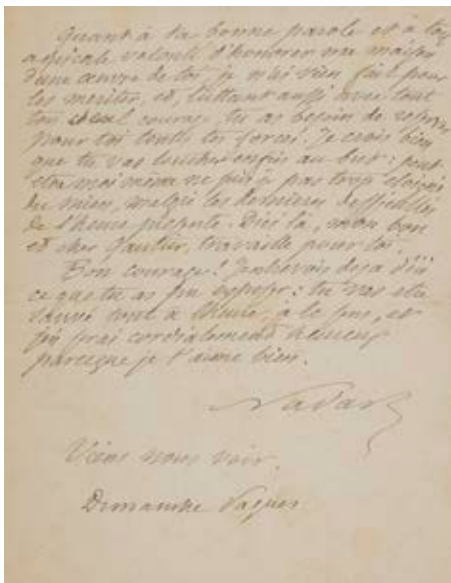 Quant à ta bonne parole et à ta
amicale volonté d'honorer ma maison
d'une œuvre de toi, je n'ai rien fait pour
les meriter, et, luttant aussi avec tout
ton courage, tu as besoin de
pour toi toutes tes forces. Je crois bien
que tu vas toucher enfin au but : peut
etre moi même ne suis je pas trop eloigné
du mien, malgré les dernieres difficultés
de l'heure presente. D'ici là, mon bon
et cher Gautier, travaille pour toi.
Bon courage ! J'entrevois deja d'ici
ce que tu as pu exposer : tu vas etre
sauvé tout à l'heure, je le sens, et
j'en serai cordialement heureux
parceque je t'aime bien.
Nadar
Viens nous voir.
Dimanche Paques